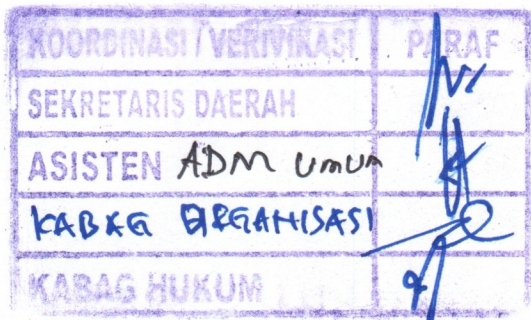 KOORDINASI / VERIVIKASI PARAF
SEKRETARIS DAERAH
ASISTEN ADM UMUM
KABAG ORGANISASI
KABAG HUKUM